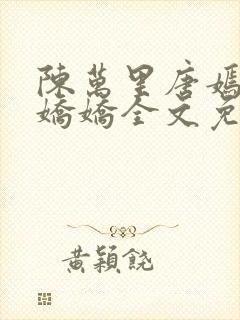 陳萬里唐嫣
嬌嬌全文免
黃穎饒